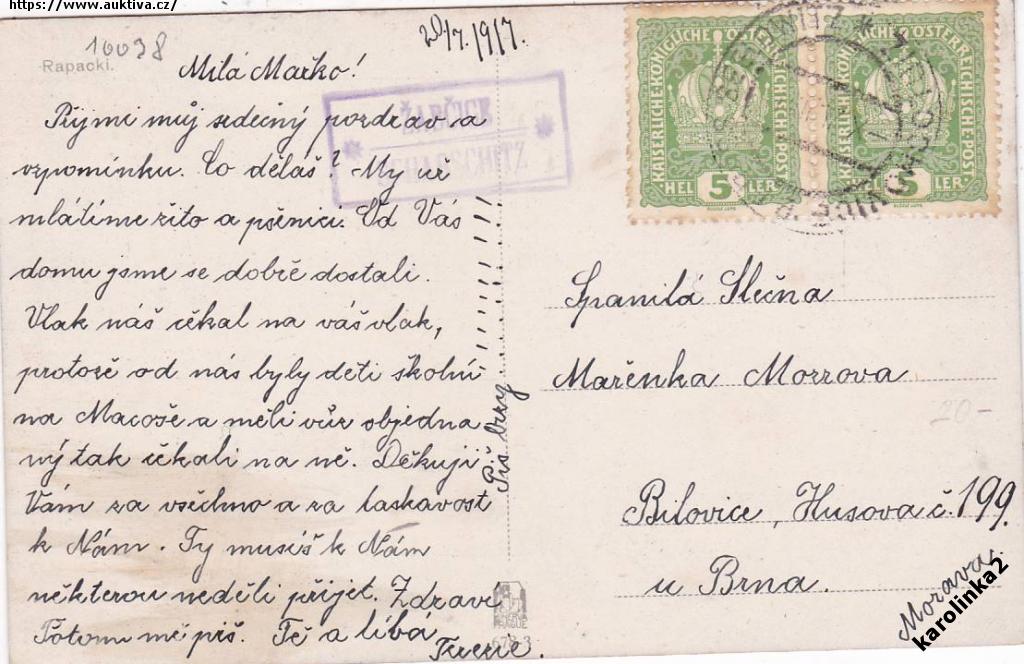 https://www.auktiva.cz/
10098
Rapacki.
20/7. 1917.
Milá Mařko!
Přijmi můj srdečný pozdrav a
vzpomínku. Co děláš? My už
mlátíme žito a pšenici. Od Vás
domu jsme se dobře dostali.
Vlak náš čekal na váš vlak,
protože od nás byly děti školní
na Macoše a měli vůz objedna
ný tak čekali na ně. Děkuji
Vám za všechno a za laskavost
k Nám. Ty musíš k Nám
některou neděli přijet. Zdravi
Potom mě piš. Tě a líbá
Piš brzy
ŽABČICE
SCHABSCHITZ
KAISERLICHE KÖNIGLICHE ÖSTERREICHISCHE POST
HEL 5 LER
KAISERLICHE KÖNIGLICHE ÖSTERREICHISCHE POST
HEL 5 LER
Spanilá Slečna
Mařenka Morrova
20-
Bilovice, Husova č. 199.
u Brna.
Morava.
karolinka2